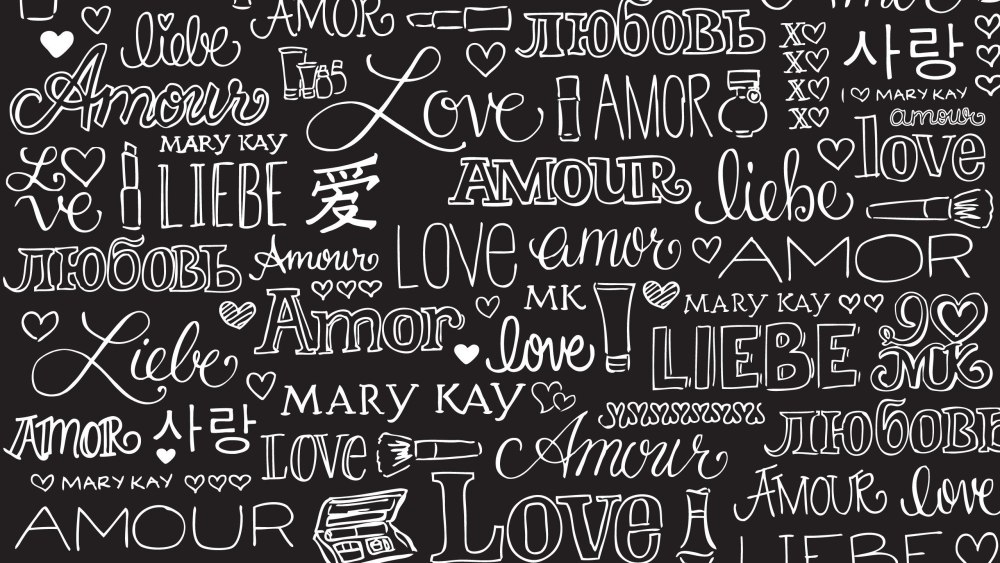 Amor
AMOR
ЛЮБОВЬ
liebe
X
X
X
X
사랑
I ♡ MARY KAY
amour
Amour
Love
AMOR
MARY KAY
love
Love
LIEBE
愛
AMOUR
liebe
ЛЮБОВЬ
Amour
LOVE
amor
AMOR
Amor
MK
MARY KAY
Liebe
love
LIEBE
I ♡ MK
MARY KAY
AMOR
사랑
LOVE
Amour
ЛЮБОВЬ
MARY KAY
AMOUR
Love
AMOUR
love
LIEBE